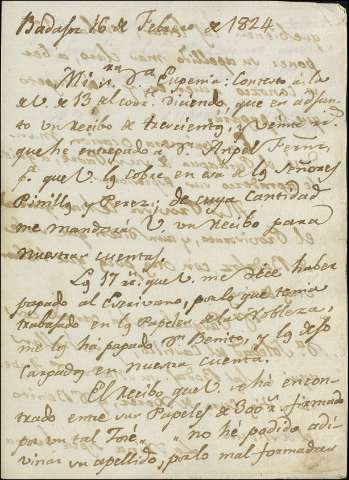 Badajoz 16 de Febrero de 1824
Mi sra. Da. Eugenia: Contexto a la
de V. de 13 del corrte. diciendo, que en adjunto
un Recibo de trescientos, y veinte rs.
que he entregado a Dn. Angel Fernz.
pa. que V. los cobre en esa de los Señores
Pinillos y Perez; de cuya Cantidad
me mandara V. un Recibo para
nuestras cuentas.
Los 17 rs. que V. me dice haber
pagado al Escrivano, por lo que tenia
trabajado en los Papeles de la Nobleza,
me los ha pagado Dn. Benito, y los dejo
Cargados en nuestra cuenta.
El Recibo que V. se há encon-
trado entre sus Papeles de 300 rs. firmado
por un tal José, no hé podido adi-
vinar su apellido, por lo mal formadas